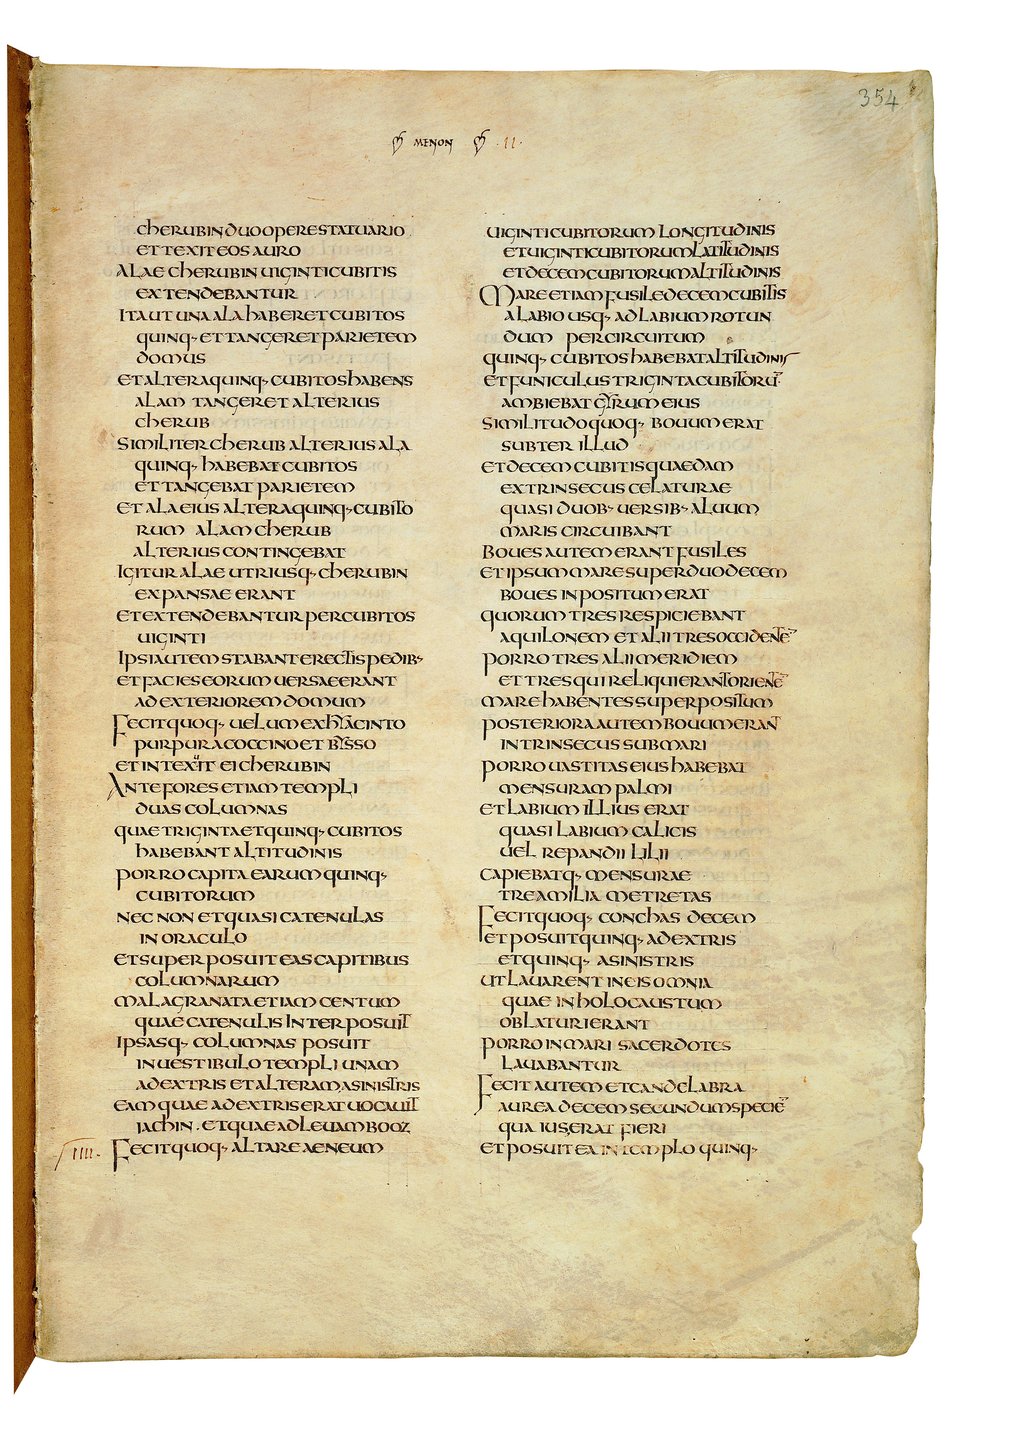 354
MENON II
CHERUBIN DUO OPERE STATUARIO
ET TEXIT EOS AURO
ALAE CHERUBIN UIGINTI CUBITIS
EXTENDEBANTUR
ITA UT UNA ALA HABERET CUBITOS
QUINQ· ET TANGERET PARIETEM
DOMUS
ET ALTERA QUINQ· CUBITOS HABENS
ALAM TANGERET ALTERIUS
CHERUB
SIMILITER CHERUB ALTERIUS ALA
QUINQ· HABEBAT CUBITOS
ET TANGEBAT PARIETEM
ET ALA EIUS ALTERA QUINQ· CUBITO
RUM ALAM CHERUB
ALTERIUS CONTINGEBAT
IGITUR ALAE UTRIUSQ· CHERUBIN
EXPANSAE ERANT
ET EXTENDEBANTUR PER CUBITOS
UIGINTI
IPSI AUTEM STABANT ERECTIS PEDIB·
ET FACIES EORUM UERSAE ERANT
AD EXTERIOREM DOMUM
FECIT QUOQ· UELUM EX HYACINTO
PURPURA COCCINO ET BYSSO
ET INTEXUIT EI CHERUBIN
ANTE FORES ETIAM TEMPLI
DUAS COLUMNAS
QUAE TRIGINTA ET QUINQ· CUBITOS
HABEBANT ALTITUDINIS
PORRO CAPITA EARUM QUINQ·
CUBITORUM
NEC NON ET QUASI CATENULAS
IN ORACULO
ET SUPERPOSUIT EAS CAPITIBUS
COLUMNARUM
MALAGRANATA ETIAM CENTUM
QUAE CATENULIS INTERPOSUIT
IPSASQ· COLUMNAS POSUIT
IN UESTIBULO TEMPLI UNAM
A DEXTRIS ET ALTERAM A SINISTRIS
EAM QUAE A DEXTRIS ERAT UOCAUIT
IACHIN · ET QUAE AD LEUAM BOOZ
IIII· FECIT QUOQ· ALTARE AENEUM
UIGINTI CUBITORUM LONGITUDINIS
ET UIGINTI CUBITORUM LATITUDINIS
ET DECEM CUBITORUM ALTITUDINIS
MARE ETIAM FUSILE DECEM CUBITIS
A LABIO USQ· AD LABIUM ROTUN
DUM PER CIRCUITUM
QUINQ· CUBITOS HABEBAT ALTITUDINIS
ET FUNICULUS TRIGINTA CUBITORU̅
AMBIEBAT GYRUM EIUS
SIMILITUDO QUOQ· BOUUM ERAT
SUBTER ILLUD
ET DECEM CUBITIS QUAEDAM
EXTRINSECUS CELATURAE
QUASI DUOB· UERSIB· ALUUM
MARIS CIRCUIBANT
BOUES AUTEM ERANT FUSILES
ET IPSUM MARE SUPER DUODECEM
BOUES INPOSITUM ERAT
QUORUM TRES RESPICIEBANT
AQUILONEM ET ALII TRES OCCIDENTE̅
PORRO TRES ALII MERIDIEM
ET TRES QUI RELIQUI ERANT ORIENTE̅
MARE HABENTES SUPERPOSITUM
POSTERIORA AUTEM BOUUM ERANT
INTRINSECUS SUB MARI
PORRO UASTITAS EIUS HABEBAT
MENSURAM PALMI
ET LABIUM ILLIUS ERAT
QUASI LABIUM CALICIS
UEL REPANDII LILII
CAPIEBATQ· MENSURAE
TREA MILIA METRETAS
FECIT QUOQ· CONCHAS DECEM
ET POSUIT QUINQ· A DEXTRIS
ET QUINQ· A SINISTRIS
UT LAUARENT IN EIS OMNIA
QUAE IN HOLOCAUSTUM
OBLATURI ERANT
PORRO IN MARI SACERDOTES
LAUABANTUR
FECIT AUTEM ET CANDELABRA
AUREA DECEM SECUNDUM SPECIE̅
QUA IUSERAT FIERI
ET POSUIT EA IN TEMPLO QUINQ·